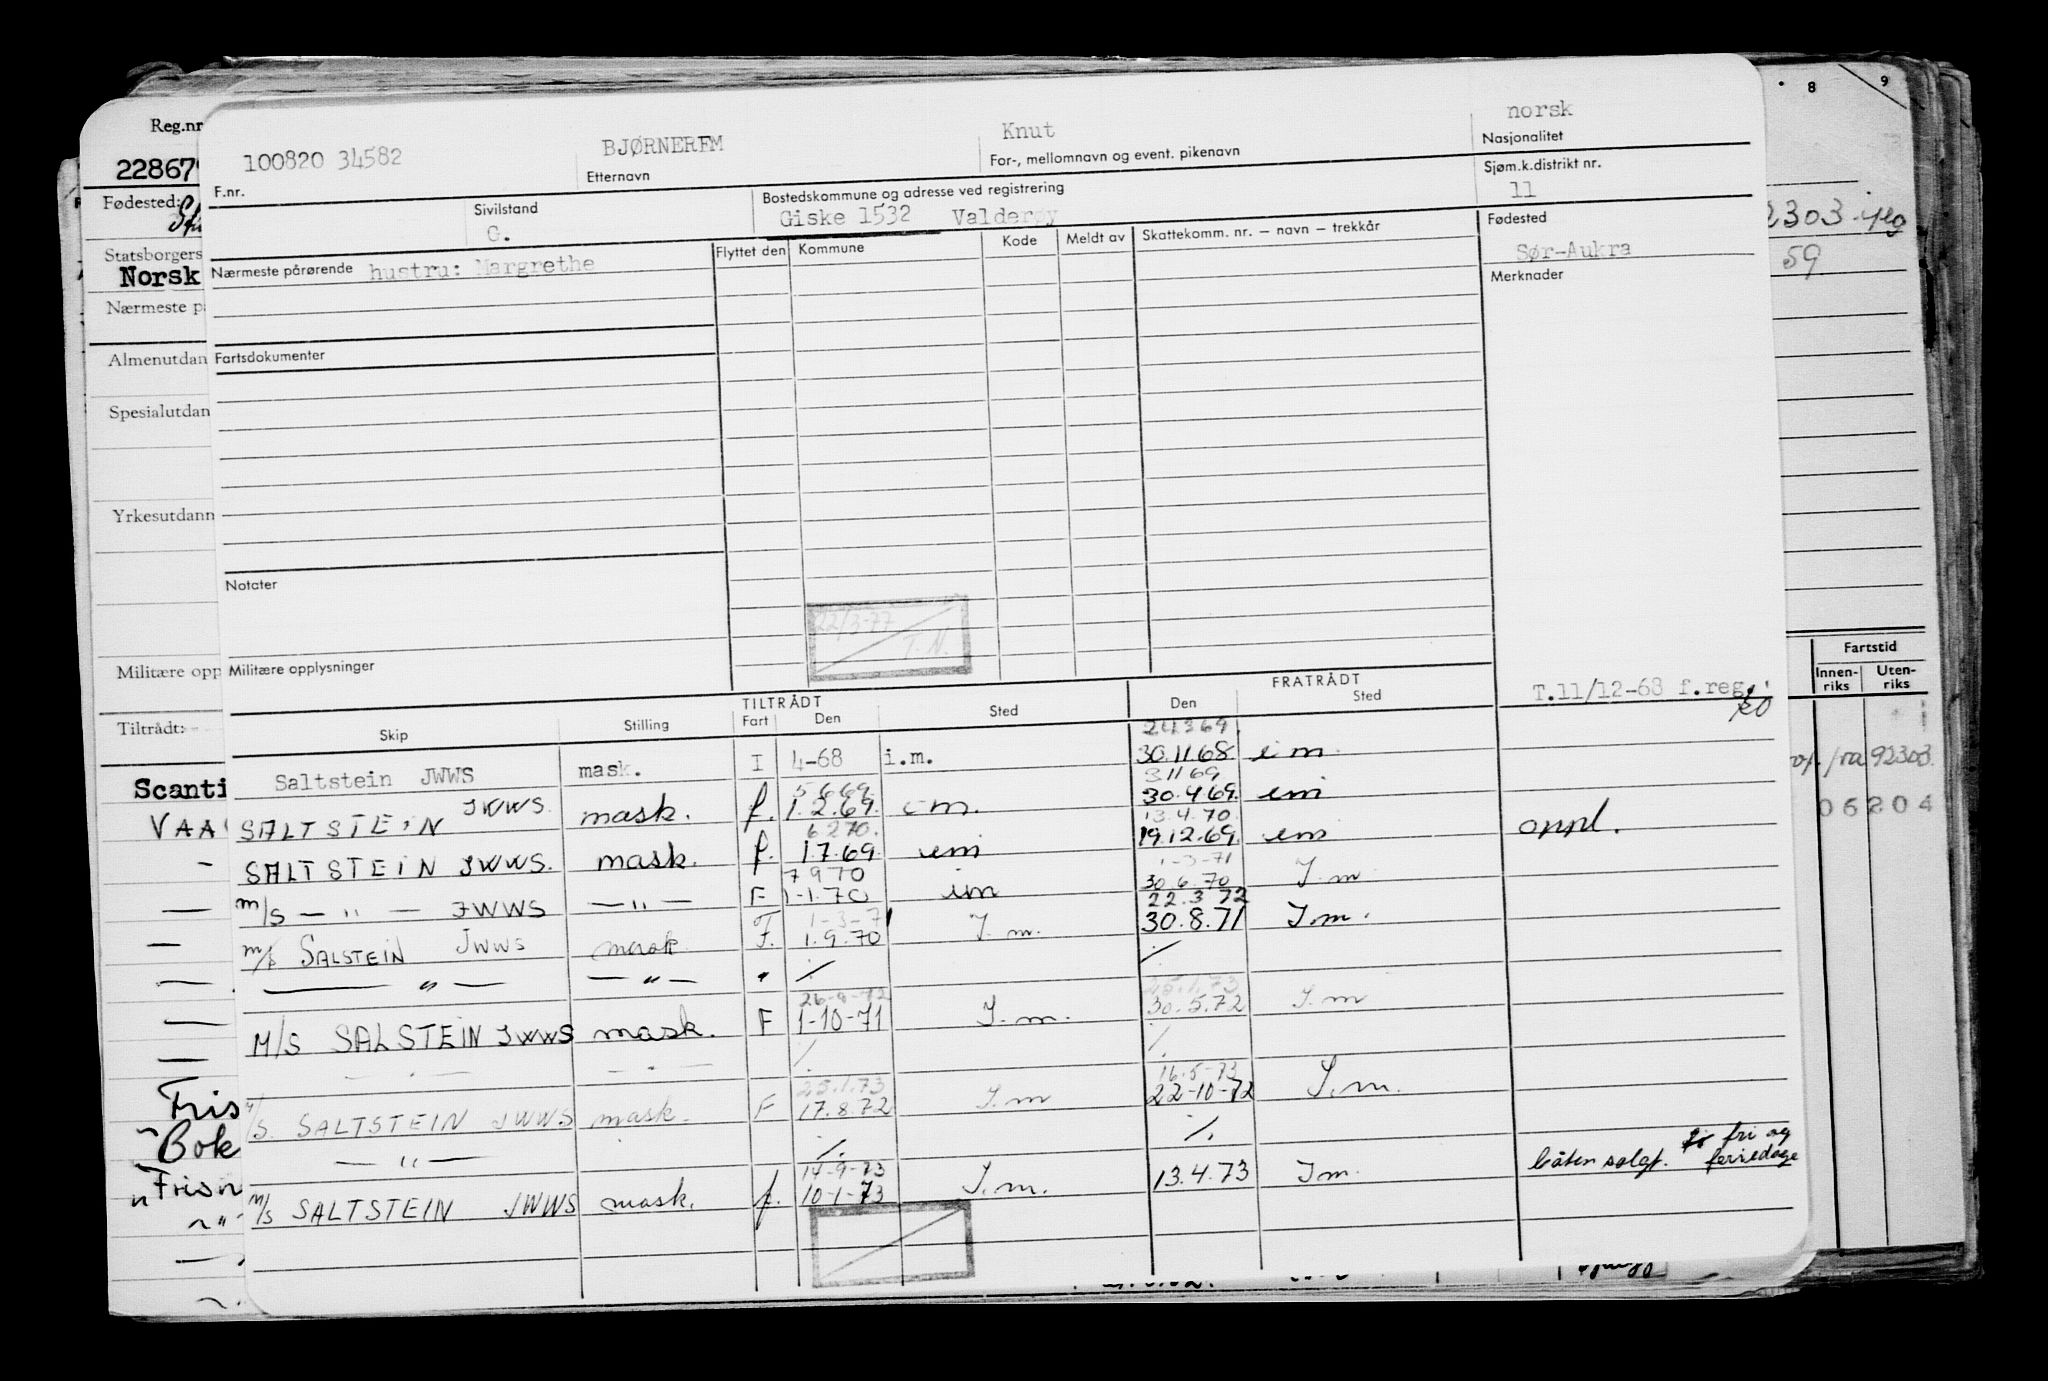 Reg.nr
8 9
100820 34582 BJØRNEREM Knut norsk
F.nr. Etternavn For-, mellomnavn og event. pikenavn Nasjonalitet
22867
Fødested:
Sivilstand Bostedskommune og adresse ved registrering Sjøm.k.distrikt nr.
G. Giske 1532 Valderøy 11
2303
59
Statsborgers
Norsk
Nærmeste pårørende hustru: Margrethe Flyttet den Kommune Kode Meldt av Skattekomm. nr. – navn – trekkår Fødested
Sør-Aukra
Merknader
Nærmeste p
Almenutdan
Fartsdokumenter
Spesialutdan
Yrkesutdann
Notater
22/3-77
T.N.
Militære opp
Militære opplysninger
Fartstid
Innen-riks Uten-riks
Tiltrådt:
TILTRÅDT FRATRÅDT
T.11/12-68 f.reg.
Skip Stilling Fart Den Sted Den Sted
24369.
Saltstein JWWS mask. I 4-68 i.m. 30.11.68 i m.
5669. 31169
SALTSTEIN JWWS. mask. f. 1.2.69. i m. 30.4.69. im
6270. 13.4.70.
SALTSTEIN JWWS. mask. f. 1.7.69. im 19.12.69. im oppl.
7970 1-3-71
m/s — " — JWWS — " — F 1-1.70 im 30.6.70 I.m
1-3-71 22.3.72
m/s SALSTEIN JWWS mask F. 1.9.70 I.m. 30.8.71 I m.
— " — — " — " ./. ./.
25.1.73
M/S SALSTEIN JWWS mask. F 1-10-71 I.m. 30.5.72 I.m
./. ./.
25.1.73 16-5-73
M/S. SALTSTEIN JWWS mask. F 17.8.72 I.m 22-10-72 I.m.
— " — ./. ./.
14-9-73
m/s SALTSTEIN JWWS mask. f. 10-1-73 I.m. 13.4.73 Im. båten solgt. fri og feriedage
Scanti
VAA
Fris
Bok
Frisn
92303.
06204